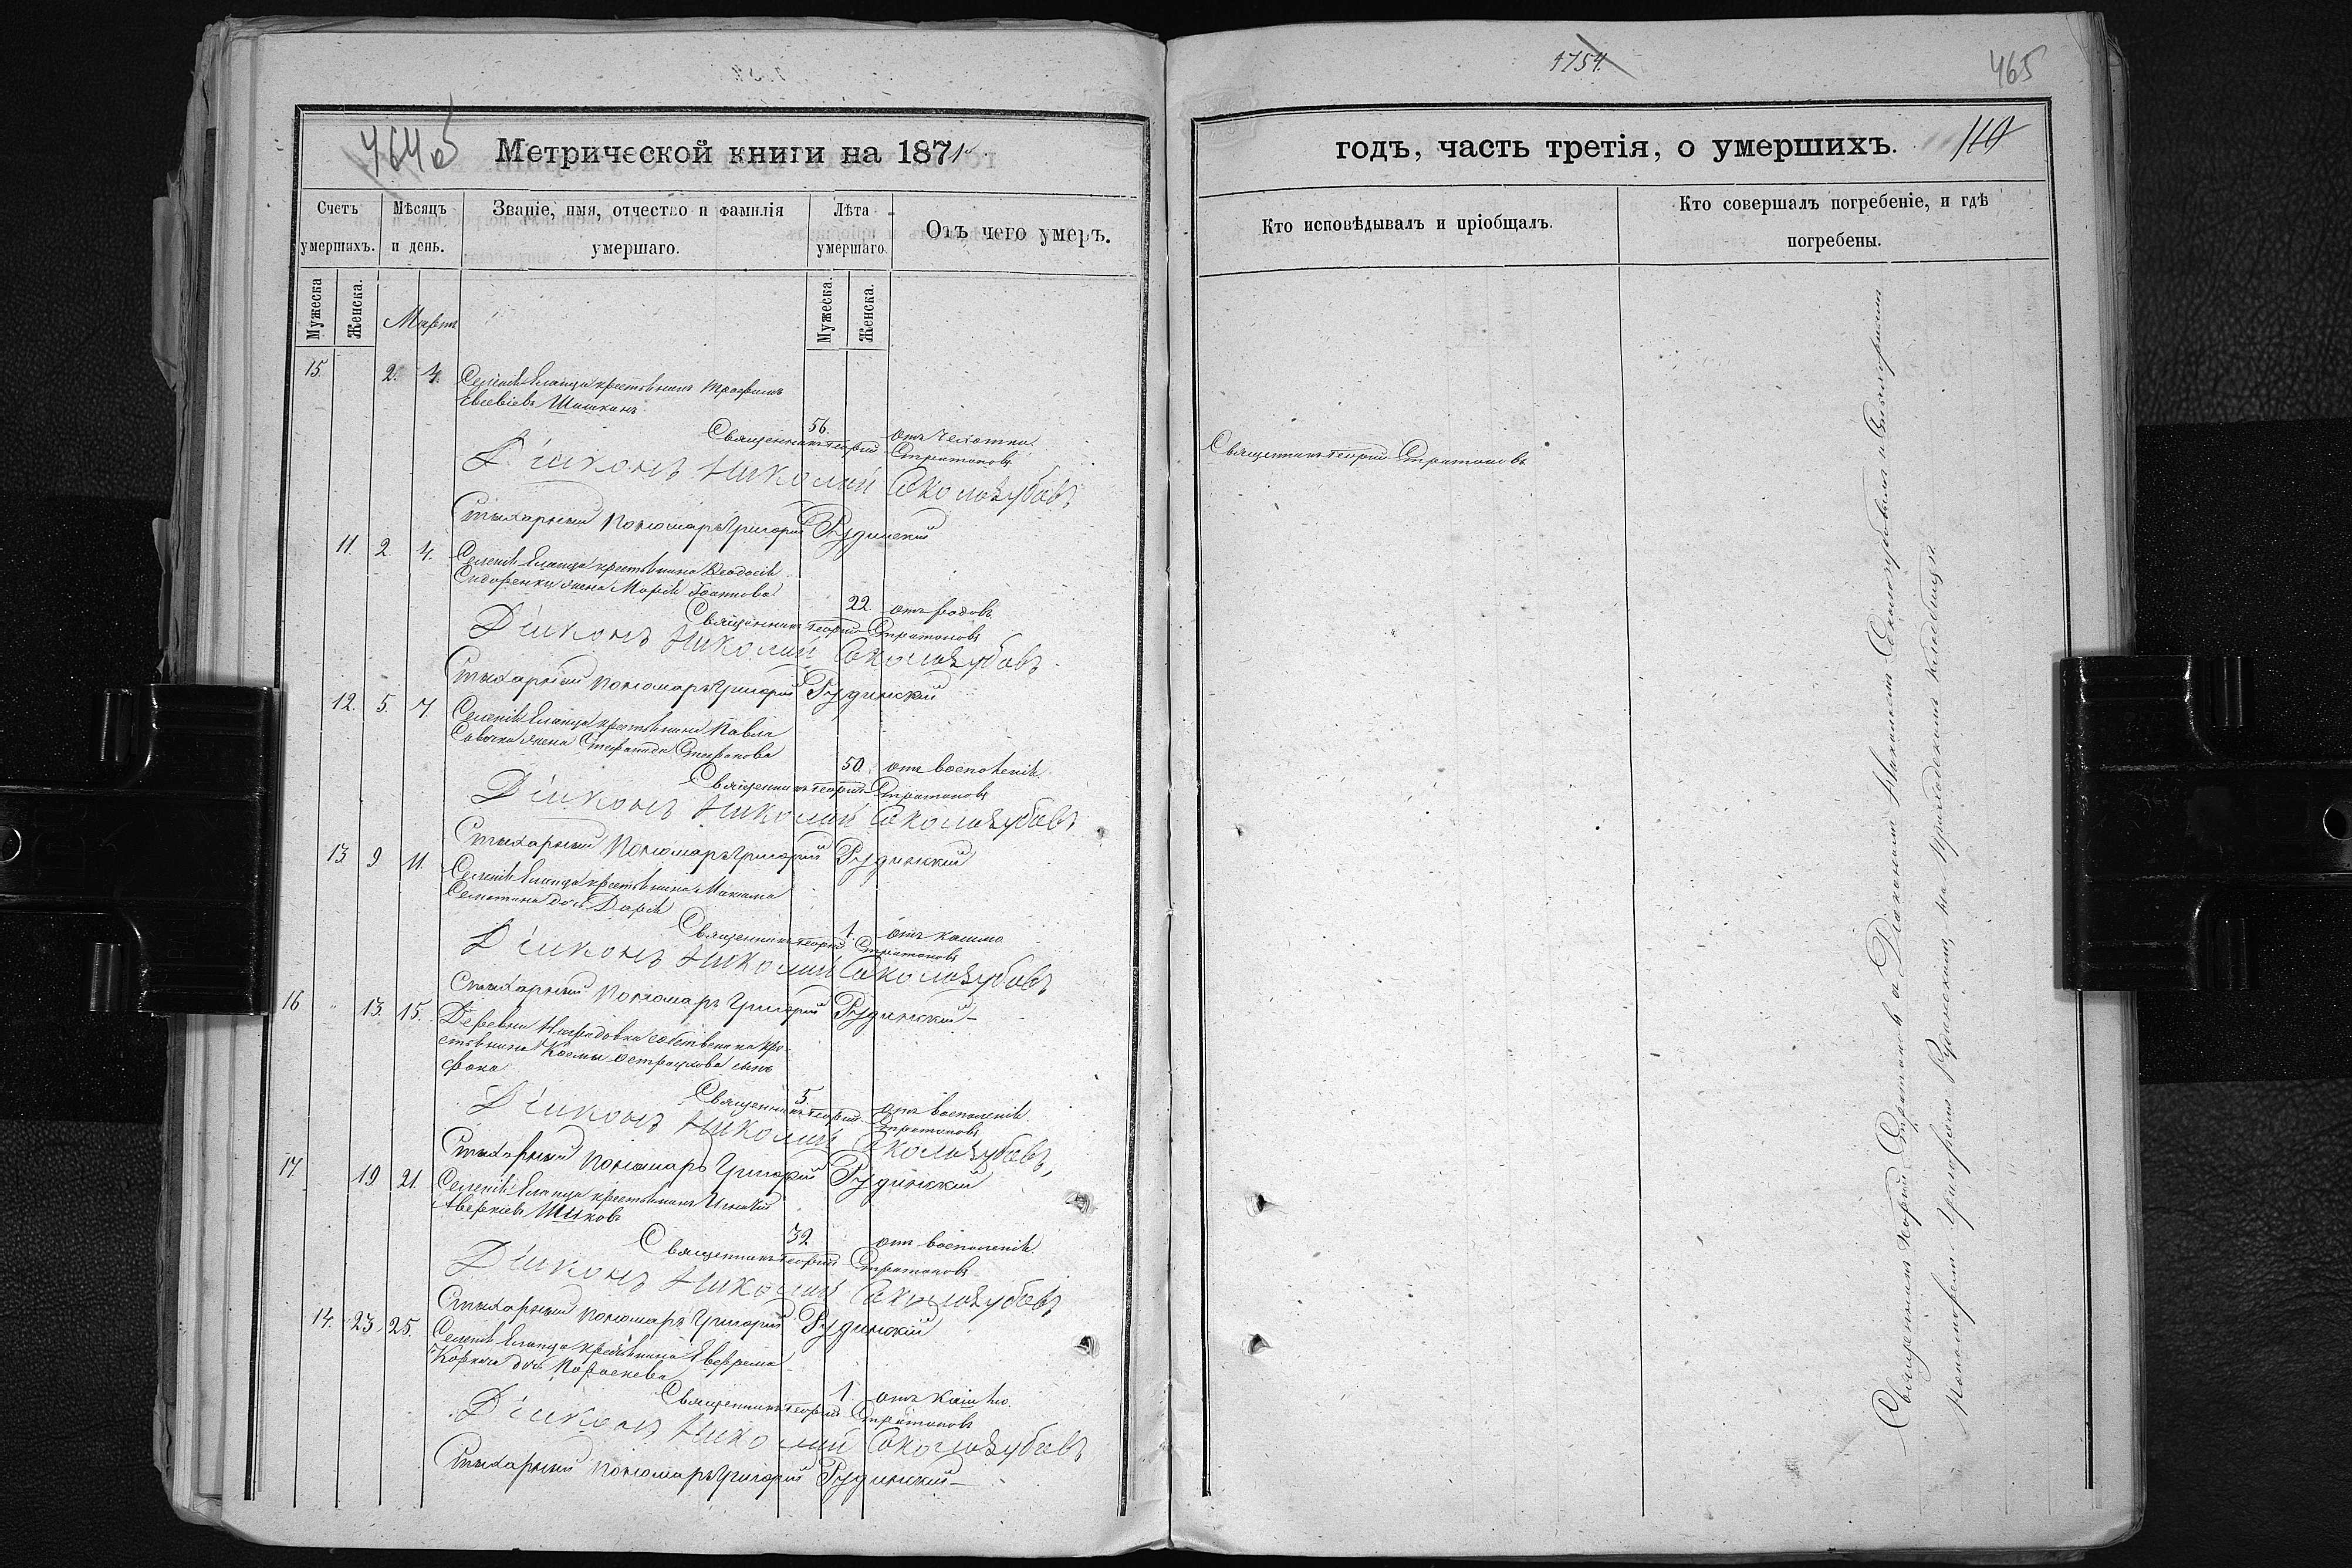 464 об
Метрической книги на 1871
Счетъ умершихъ.
Мѣсяцъ и день.
Званіе, имя, отчество и фамилія умершаго.
Лѣта умершаго
Отъ чего умеръ.
Мужеска
Женска.
Мартъ
Мужеска.
Женска.
15. 2. 4. Селенія Еланца крестьянинъ Трофимъ
Евсевіевъ Шишкинъ
56. отъ чахотки
Священникъ Георгій Стратоновъ
Діаконъ Николай Соколозубовъ
Стихарный Пономарь Григорій Рудинскій
11. 2. 4. Селенія Еланца крестьянина Ѳеодосія
Сидоренки жена Марія Іоаннова
22 отъ родовъ
Священникъ Георгій Стратоновъ
Діаконъ Николай Соколозубовъ
Стихарный Пономарь Григорій Рудинскій
12. 5. 7. Селенія Еланца крестьянина Павла
Савочки жена Стефанида Стефанова
50 отъ воспаленія
Священникъ Георгій Стратоновъ
Діаконъ Николай Соколозубовъ
Стихарный Пономарь Григорій Рудинскій
13 9 11. Селенія Еланца крестьянина Максима
дочь Дарія
1. отъ кашлю
Священникъ Георгій Стратоновъ
Діаконъ Николай Соколозубовъ
Стихарный Пономарь Григорій Рудинскій
16 " 13. 15. Деревни собственника кре-
стьянина Космы сынъ
Фока
5. отъ воспаленія
Священникъ Георгій Стратоновъ
Діаконъ Николай Соколозубовъ
Стихарный Пономарь Григорій Рудинскій
17 19 21. Селенія Еланца крестьянинъ Игнатій
Аверкіевъ
32 отъ воспаленія
Священникъ Георгій Стратоновъ
Діаконъ Николай Соколозубовъ
Стихарный Пономарь Григорій Рудинскій
14. 23 25. Селенія Еланца крестьянина Евфрема
дочь Параскева
1 отъ кашлю
Священникъ Георгій Стратоновъ
Діаконъ Николай Соколозубовъ
Стихарный Пономарь Григорій Рудинскій
1754.
465
годъ, часть третія, о умершихъ.
110
Кто исповѣдывалъ и пріобщалъ.
Кто совершалъ погребеніе, и гдѣ погребены.
Священникъ Георгій Стратоновъ
Священникъ Георгій Стратоновъ съ Діакономъ Николаемъ Соколозубовымъ и
Пономаремъ Григоріемъ Рудинскимъ на приходскомъ кладбищѣ